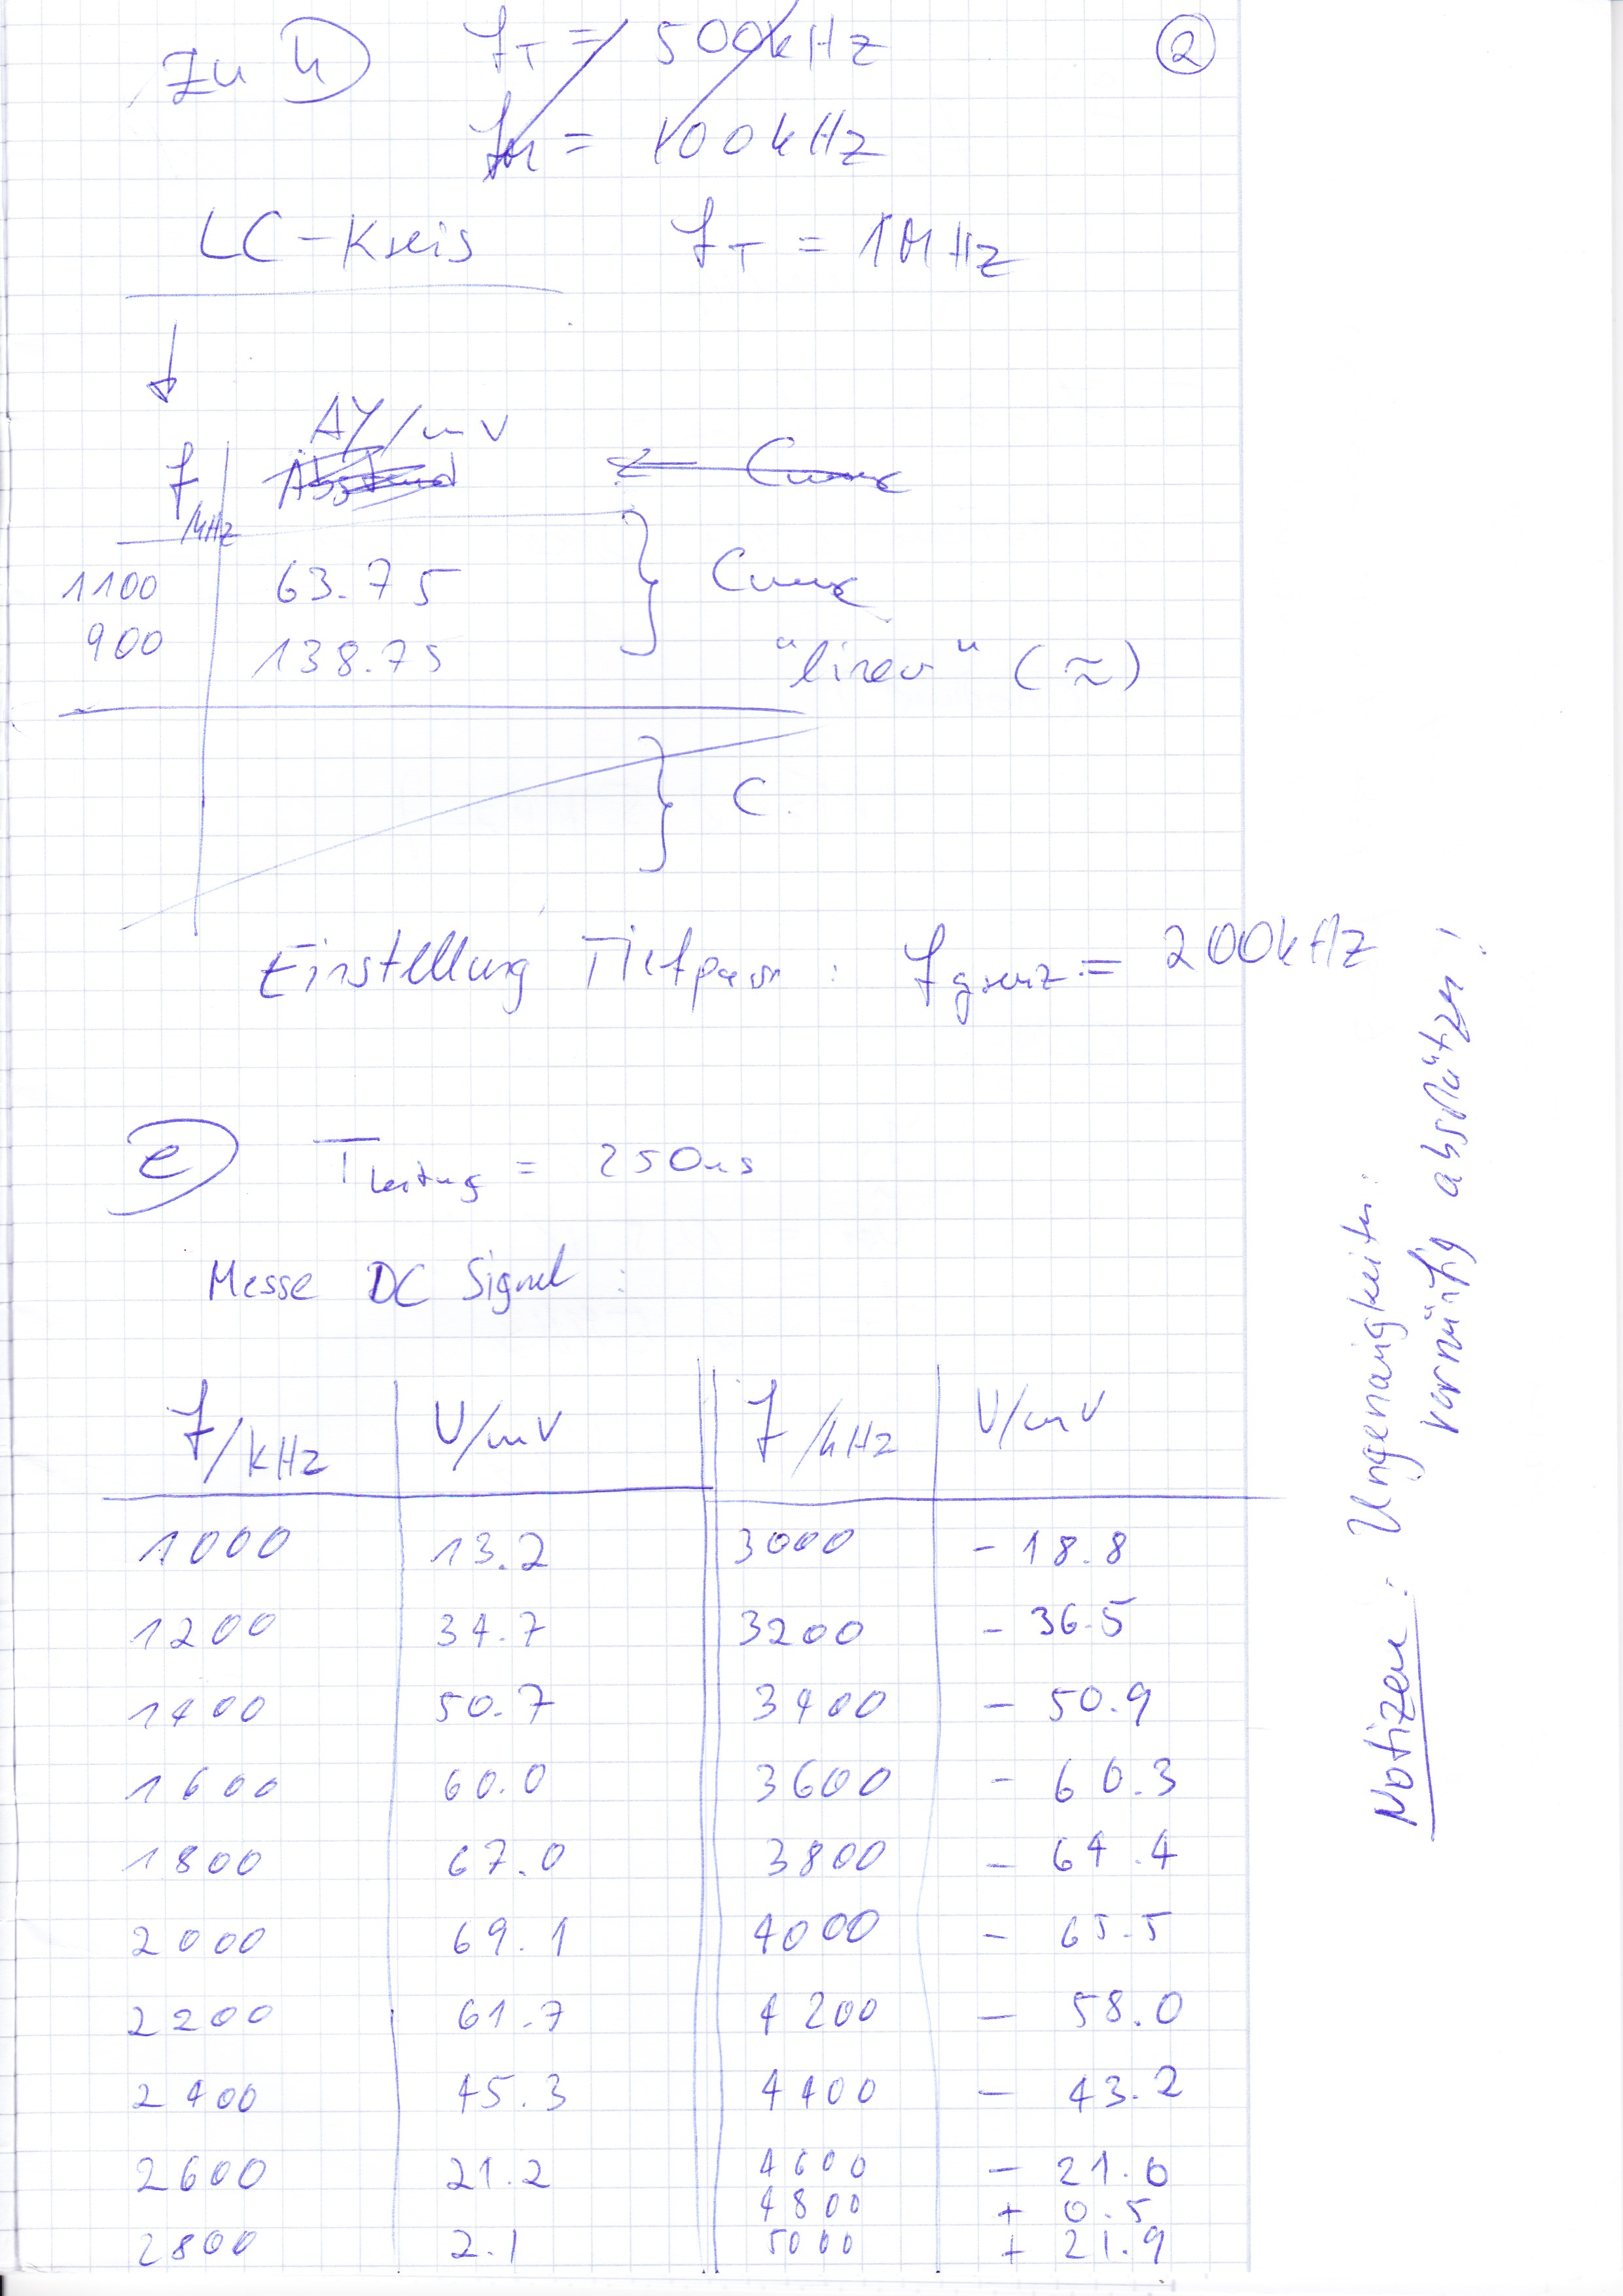 zu h) f_T = 500kHz ②
f_M = 100kHz
LC-Kreis f_T = 1MHz
↓
f/kHz | ΔY/mV
Abstand ← Cmax
1100 | 63.75 } Cmax
900 | 138.75 "linear" (≈)
} C
Einstellung Tiefpass : f_grenz = 200kHz
e) T_Leitung = 250ns
Messe DC Signal :
f/kHz | U/mV || f/kHz | U/mV
1000 | 13.2 || 3000 | - 18.8
1200 | 34.7 || 3200 | - 36.5
1400 | 50.7 || 3400 | - 50.9
1600 | 60.0 || 3600 | - 60.3
1800 | 67.0 || 3800 | - 64.4
2000 | 69.1 || 4000 | - 65.5
2200 | 61.7 || 4200 | - 58.0
2400 | 45.3 || 4400 | - 43.2
2600 | 21.2 || 4600 | - 21.0
4800 | + 0.5
2800 | 2.1 || 5000 | + 21.9
Notizen: Ungenauigkeiten:
vernünftig abschätzen!